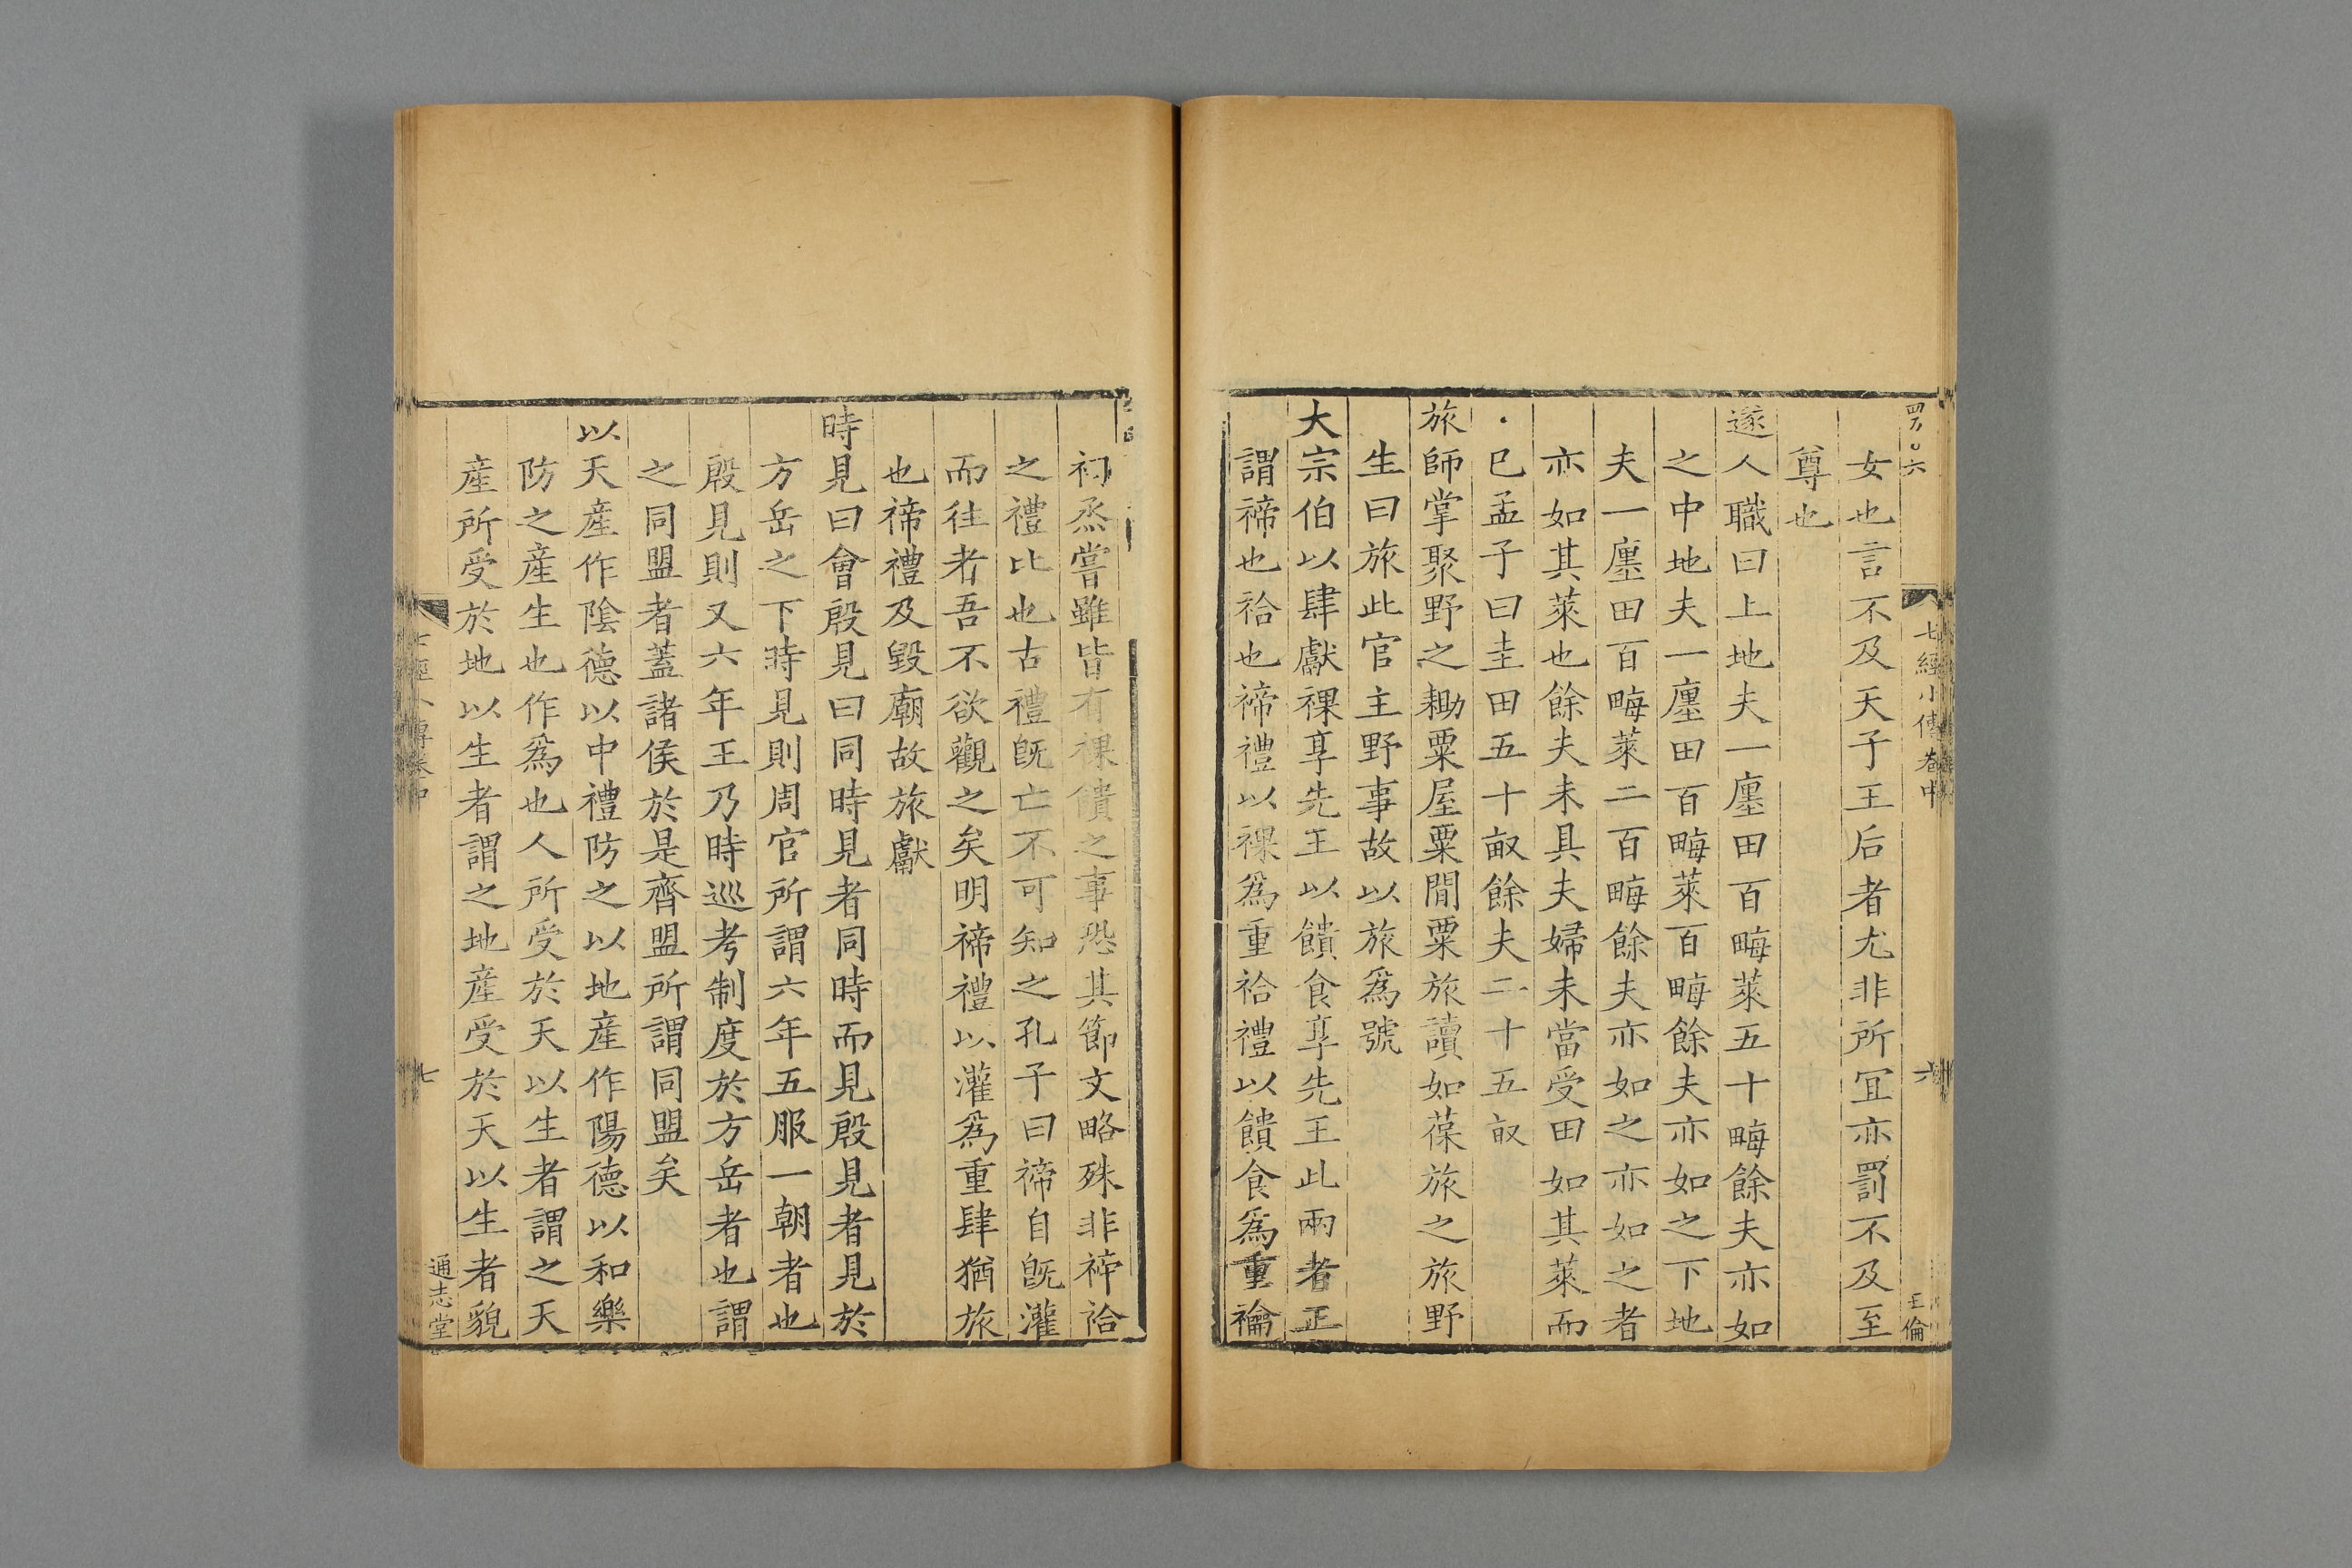 七經小傳卷中
六
王倫
女也言不及天子王后者尤非所宜亦罰不及至
尊也
遂人職曰上地夫一廛田百畮萊五十畮餘夫亦如
之中地夫一廛田百畮萊百畮餘夫亦如之下地
夫一廛田百畮萊二百畮餘夫亦如之亦如之者
亦如其萊也餘夫未具夫婦未當受田如其萊而
已孟子曰圭田五十畝餘夫二十五畝
旅師掌聚野之耡粟屋粟閒粟旅讀如葆旅之旅野
生曰旅此官主野事故以旅爲號
大宗伯以肆獻祼享先王以饋食享先王此兩者正
謂禘也祫也禘禮以祼爲重祫禮以饋食爲重禴
礿烝嘗雖皆有祼饋之事恐其節文略殊非禘祫
之禮比也古禮旣亡不可知之孔子曰禘自旣灌
而往者吾不欲觀之矣明禘禮以灌爲重肆猶旅
也禘禮及毀廟故旅獻
時見曰會殷見曰同時見者同時而見殷見者見於
方岳之下時見則周官所謂六年五服一朝者也
殷見則又六年王乃時巡考制度於方岳者也謂
之同盟者蓋諸侯於是齊盟所謂同盟矣
以天產作陰德以中禮防之以地產作陽德以和樂
防之產生也作爲也人所受於天以生者謂之天
產所受於地以生者謂之地產受於天以生者貌
七
通志堂